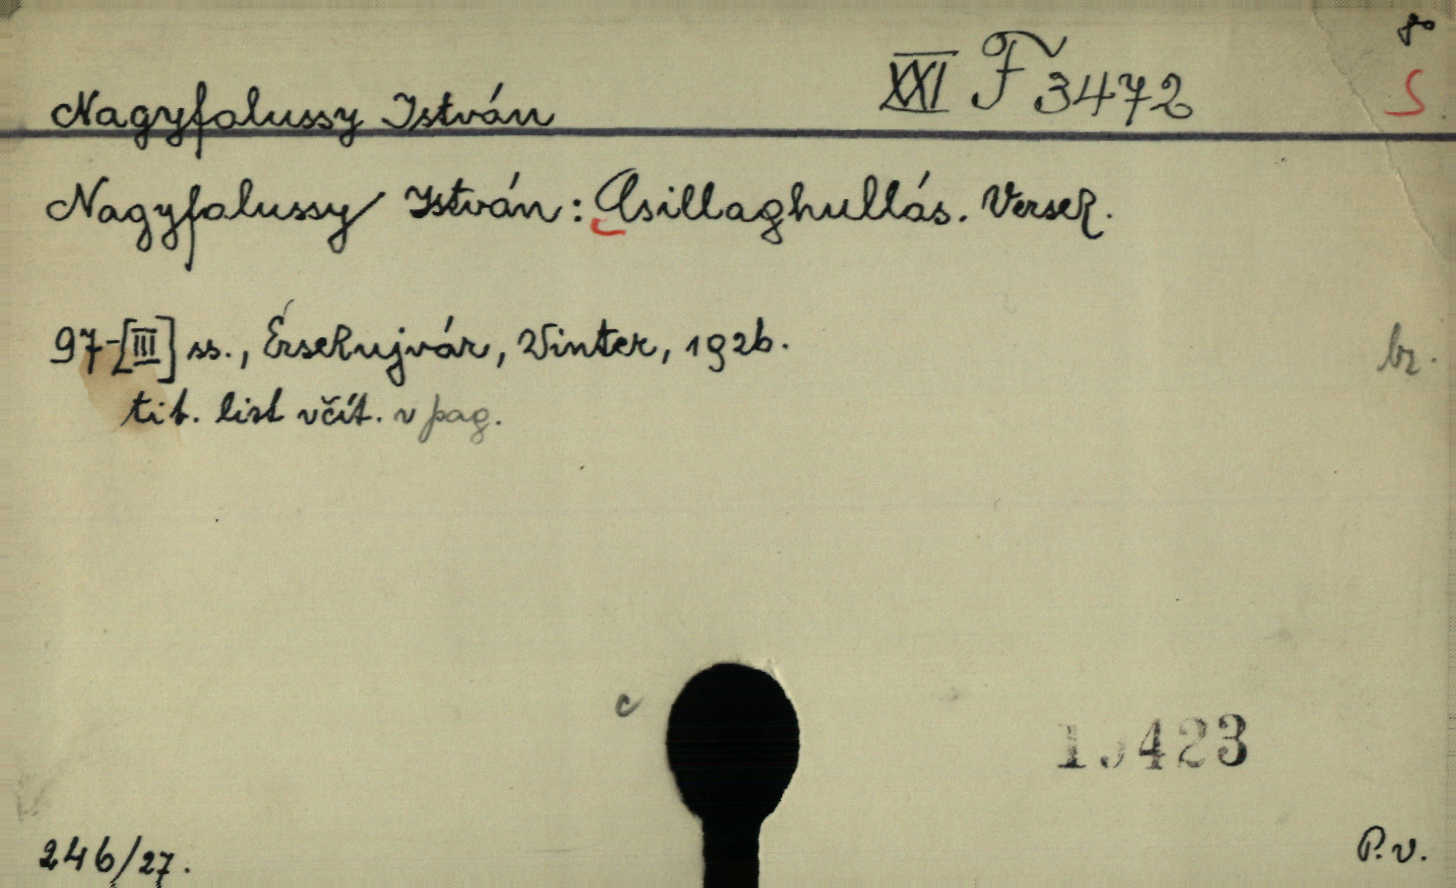 8°
XXI F 3472
S
Nagyfalussy István
Nagyfalussy István: Csillaghullás. Versek.
97-[III] ss., Érsekujvár, Winter, 1926.
br.
tit. list včít. v pag.
c
246/27.
P.v.